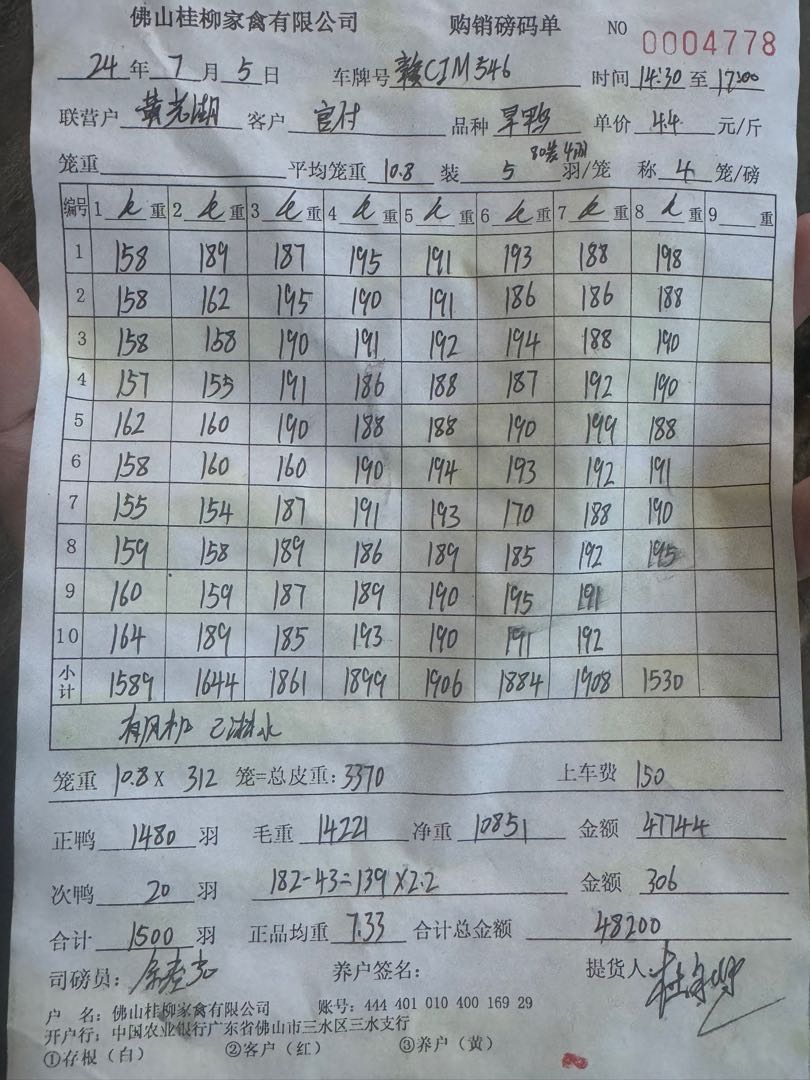 佛山桂柳家禽有限公司 购销磅码单 NO 0004778
24年7月5日 车牌号 赣CJM546 时间14:30至17:00
联营户 黄光湖 客户 官付 品种 旱鸭 单价 4.4 元/斤
80装4羽
笼重 平均笼重 10.8 装 5 羽/笼 称 4 笼/磅
编号 1 重 2 重 3 重 4 重 5 重 6 重 7 重 8 重 9 重
1 158 189 187 195 191 193 188 198
2 158 162 195 190 191 186 186 188
3 158 158 190 191 192 194 188 190
4 157 155 191 186 188 187 192 190
5 162 160 190 188 188 190 199 188
6 158 160 160 190 194 193 192 191
7 155 154 187 191 193 170 188 190
8 159 158 189 186 189 185 192 195
9 160 159 187 189 190 195 191
10 164 189 185 193 190 191 192
小计 1589 1644 1861 1899 1906 1884 1908 1530
有风机 已淋水
笼重 10.8 X 312 笼=总皮重:3370 上车费 150
正鸭 1480 羽 毛重 14221 净重 10851 金额 47744
次鸭 20 羽 182-43=139X2.2 金额 306
合计 1500 羽 正品均重 7.33 合计总金额 48200
司磅员: 养户签名: 提货人:
户 名:佛山桂柳家禽有限公司 账号:444 401 010 400 169 29
开户行:中国农业银行广东省佛山市三水区三水支行
①存根(白) ②客户(红) ③养户(黄)